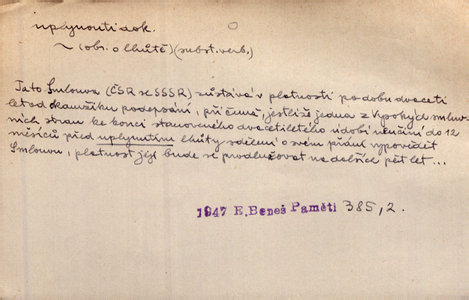 uplynouti dok.
~ (obr. o lhůtě) (subst. verb.)
Tato Smlouva (ČSR se SSSR) zůstává v platnosti po dobu dvaceti
let od okamžiku podepsání, při čemž, jestliže jedna z Vysokých smluv-
ních stran ke konci stanoveného dvacetiletého údobí neučiní do 12
měsíců před uplynutím lhůty sdělení o svém přání vypovědět
Smlouvu, platnost její bude se prodlužovat na dalších pět let...
1947 E. Beneš Paměti 385,2.